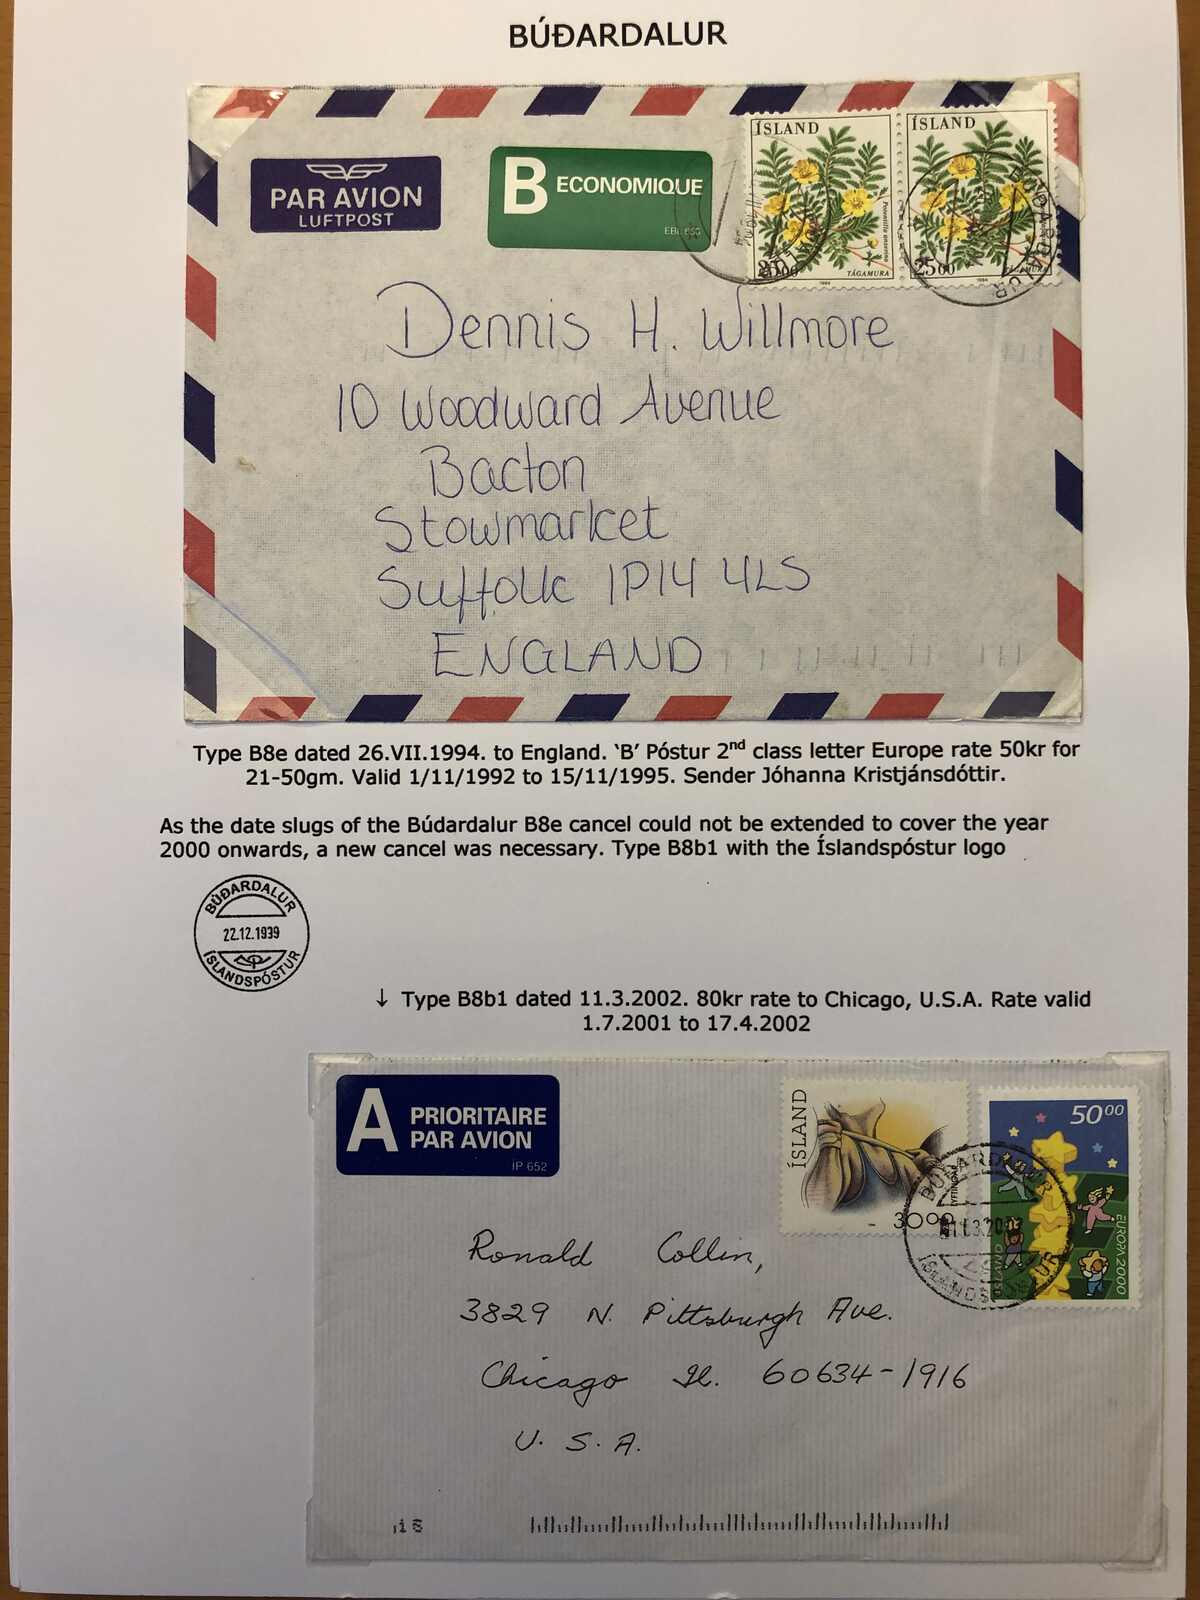 BÚÐARDALUR
PAR AVION
LUFTPOST
B ECONOMIQUE
ÍSLAND
Potentilla anserina
TÁGAMURA
1984
ÍSLAND
2500
TÁGAMURA
1984
BÚÐARDALUR
Dennis H. Willmore
10 Woodward Avenue
Bacton
Stowmarket
Suffolk IP14 4LS
ENGLAND
Type B8e dated 26.VII.1994. to England. ‘B’ Póstur 2nd class letter Europe rate 50kr for
21-50gm. Valid 1/11/1992 to 15/11/1995. Sender Jóhanna Kristjánsdóttir.
As the date slugs of the Búdardalur B8e cancel could not be extended to cover the year
2000 onwards, a new cancel was necessary. Type B8b1 with the Íslandspóstur logo
BÚÐARDALUR
22.12.1939
ÍSLANDSPÓSTUR
↓ Type B8b1 dated 11.3.2002. 80kr rate to Chicago, U.S.A. Rate valid
1.7.2001 to 17.4.2002
A PRIORITAIRE
PAR AVION
IP 652
ÍSLAND
3000
5000
EUROPA 2000
ÍSLAND
BÚÐARDALUR
ÍSLANDSPÓSTUR
Ronald Collin,
3829 N. Pittsburgh Ave.
Chicago Il. 60634-1916
U. S. A.